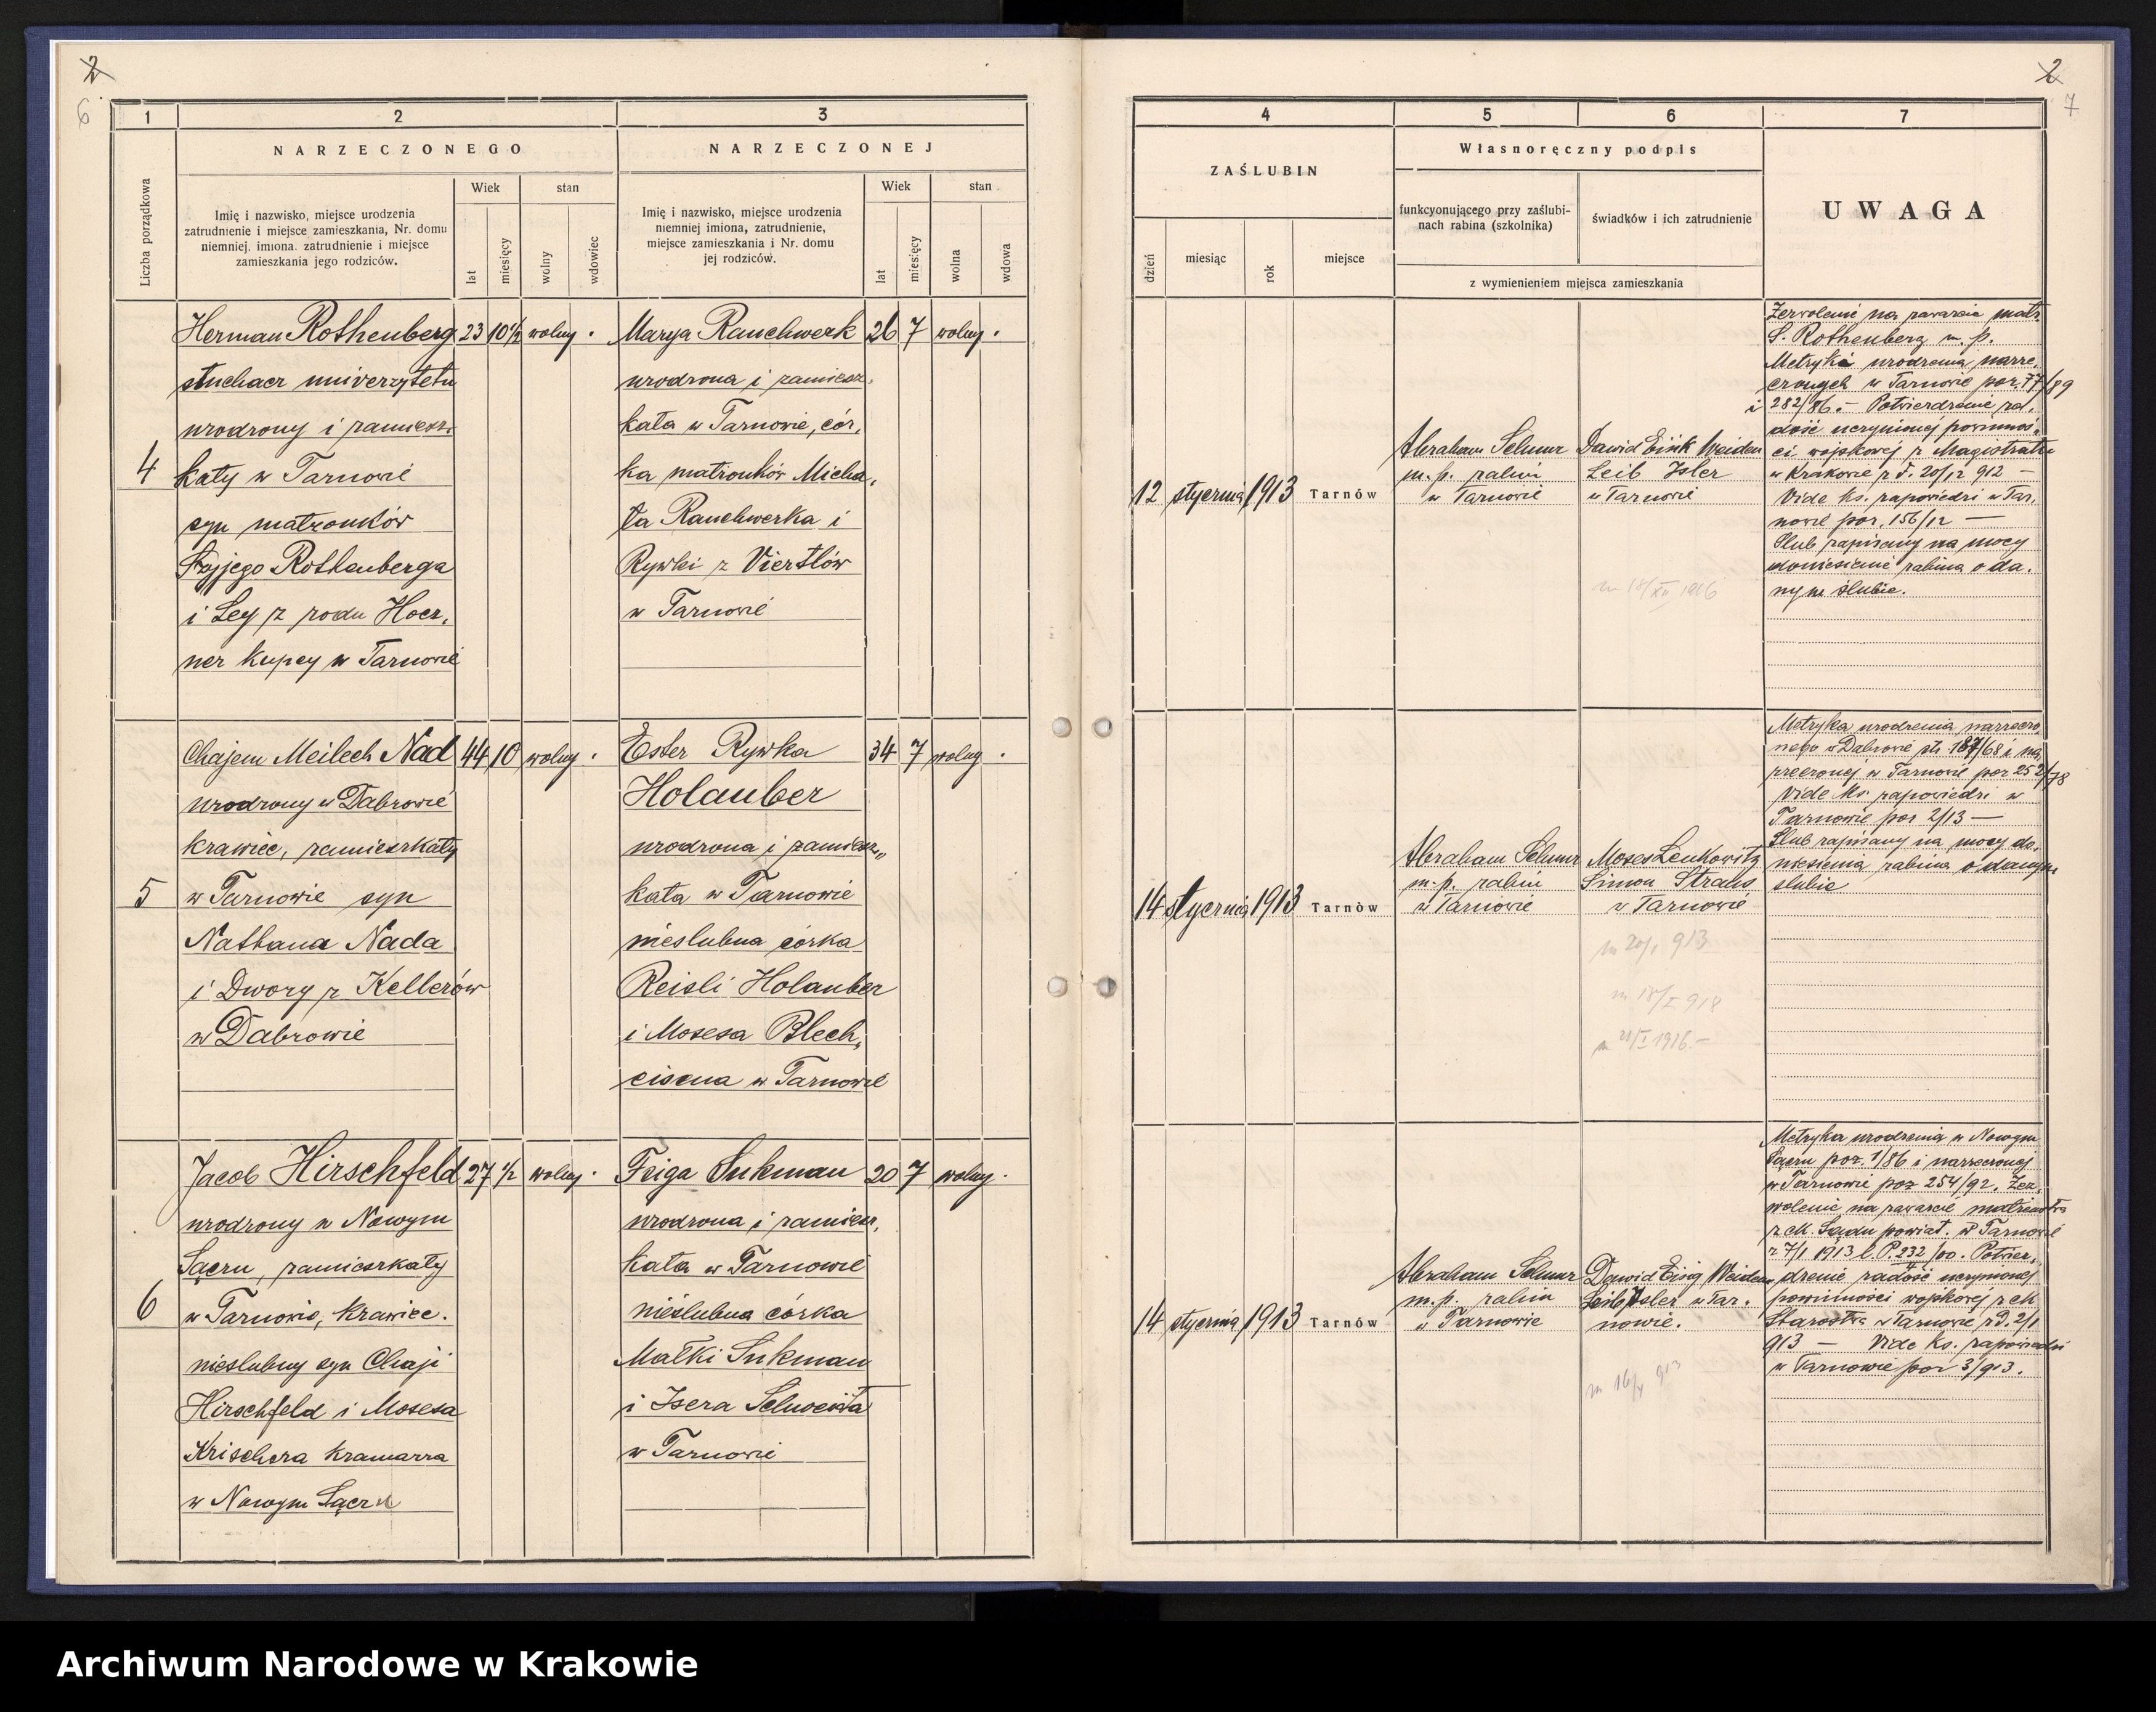 2
6
2
7
1
2
3
NARZECZONEGO
NARZECZONEJ
Liczba porządkowa
Imię i nazwisko, miejsce urodzenia
zatrudnienie i miejsce zamieszkania, Nr. domu
niemniej. imiona. zatrudnienie i miejsce
zamieszkania jego rodziców.
Wiek
stan
lat
miesięcy
wolny
wdowiec
Imię i nazwisko, miejsce urodzenia
niemniej imiona, zatrudnienie,
miejsce zamieszkania i Nr. domu
jej rodziców.
Wiek
stan
lat
miesięcy
wolna
wdowa
4
5
6
7
ZAŚLUBIN
Własnoręczny podpis
UWAGA
dzień
miesiąc
rok
miejsce
funkcyonującego przy zaślubi-
nach rabina (szkolnika)
świadków i ich zatrudnienie
z wymienieniem miejsca zamieszkania
4
Herman Rothenberg
słuchacz uniwerzytetu
urodzony i zamiesz.
kały w Tarnowie
syn małżonków
Rothenberga
i Ley z rodu Hocz.
ner kupcy w Tarnowie
23
10 1/2
wolny .
Marya Rauchwerk
urodzona i zamiesz.
kała w Tarnowie, cór,
ka małżonków Micha,
ła Rauchwerka i
Rywki z Viertlów
w Tarnowie
26
7
wolny .
12
stycznia
1913
Tarnów
Abraham Schnur
m.p. rabin
w Tarnowie
Dawid Eisik Weiden
Leib Isler
w Tarnowie
m 18/XII 1916
Zezwolenie na zawarcie małż.
S. Rothenberg m. p.
Metryka urodzenia narze.
czonych w Tarnowie poz. 77/89
i 282/86. – Potwierdzenie za.
dość uczynionej powinnoś.
ci wojskowej z Magistratu
w Krakowie z d. 20/12 912 —
Vide ks. zapowiedzi w Tar.
nowie poz. 156/12 —
Slub zapisany na mocy
doniesienie rabina o da.
nym ślubie.
5
Chajem Meilech Nad
urodzony w Dabrowie
krawiec, zamieszkały
w Tarnowie syn
Nathana Nada
i Dwory z Kellerów
w Dabrowie
44
10
wolny .
Ester Rywka
Holauber
urodzona i zamiesz„
kała w Tarnowie
nieslubna córka
Reisli Holauber
i Mosesa Blech„
eisena w Tarnowie
34
7
wolny .
14
stycznia
1913
Tarnów
Abraham Schnur
m.p. rabin
w Tarnowie
Moses Lenkowitz
Simon Straus
w Tarnowie
m 20/1 913
m 18/I 918
m 21/I 1916.–
Metryka urodzenia narzeczo
nego w Dabrowie str 187/68 i na
rzeczonej w Tarnowie poz 252/78
Vide ks. zapowiedzi w
Tarnowie poz 2/13 —
Slub zapisany na mocy do.
niesienia rabina o danym
slubie
6
Jacob Hirschfeld
urodzony w Nowym
Sączu, zamieszkały
w Tarnowie, krawiec.
nieslubny syn Chaji
Hirschfeld i Mosesa
Krischera kramarza
w Nowym Sączu
27
1/2
wolny .
Feiga Sukman
urodzona i zamiesz.
kała w Tarnowie
nieślubna córka
Małki Sukman
i Isera
w Tarnowie
20
7
wolny .
14
stycznia
1913
Tarnów
Abraham Schnur
m.p. rabin
w Tarnowie
Dawid Eisig Weiden
Leib Isler w Tar.
nowie.
913
Metryka urodzenia w Nowym
Sączu poz. 1/86 i narzeczonej
w Tarnowie poz 254/92. Zez.
wolenie na zawarcie małżeństwa
z ck. Sądu powiat. w Tarnowie
z 7/1 1913 l. P. 232/00. Potwier.
dzenie zadość uczynionej
powinności wojskowej z ck
Starostwa w Tarnowie z d. 2/1
913 — Vide ks. zapowiedzi
w Tarnowie poz 3/913.
Archiwum Narodowe w Krakowie